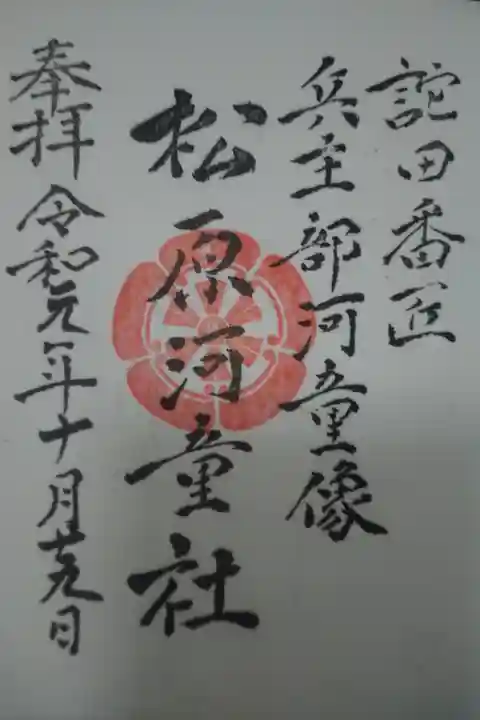 詫田番匠
兵主部河童像
松原河童社
奉拝 令和元年十月廿九日